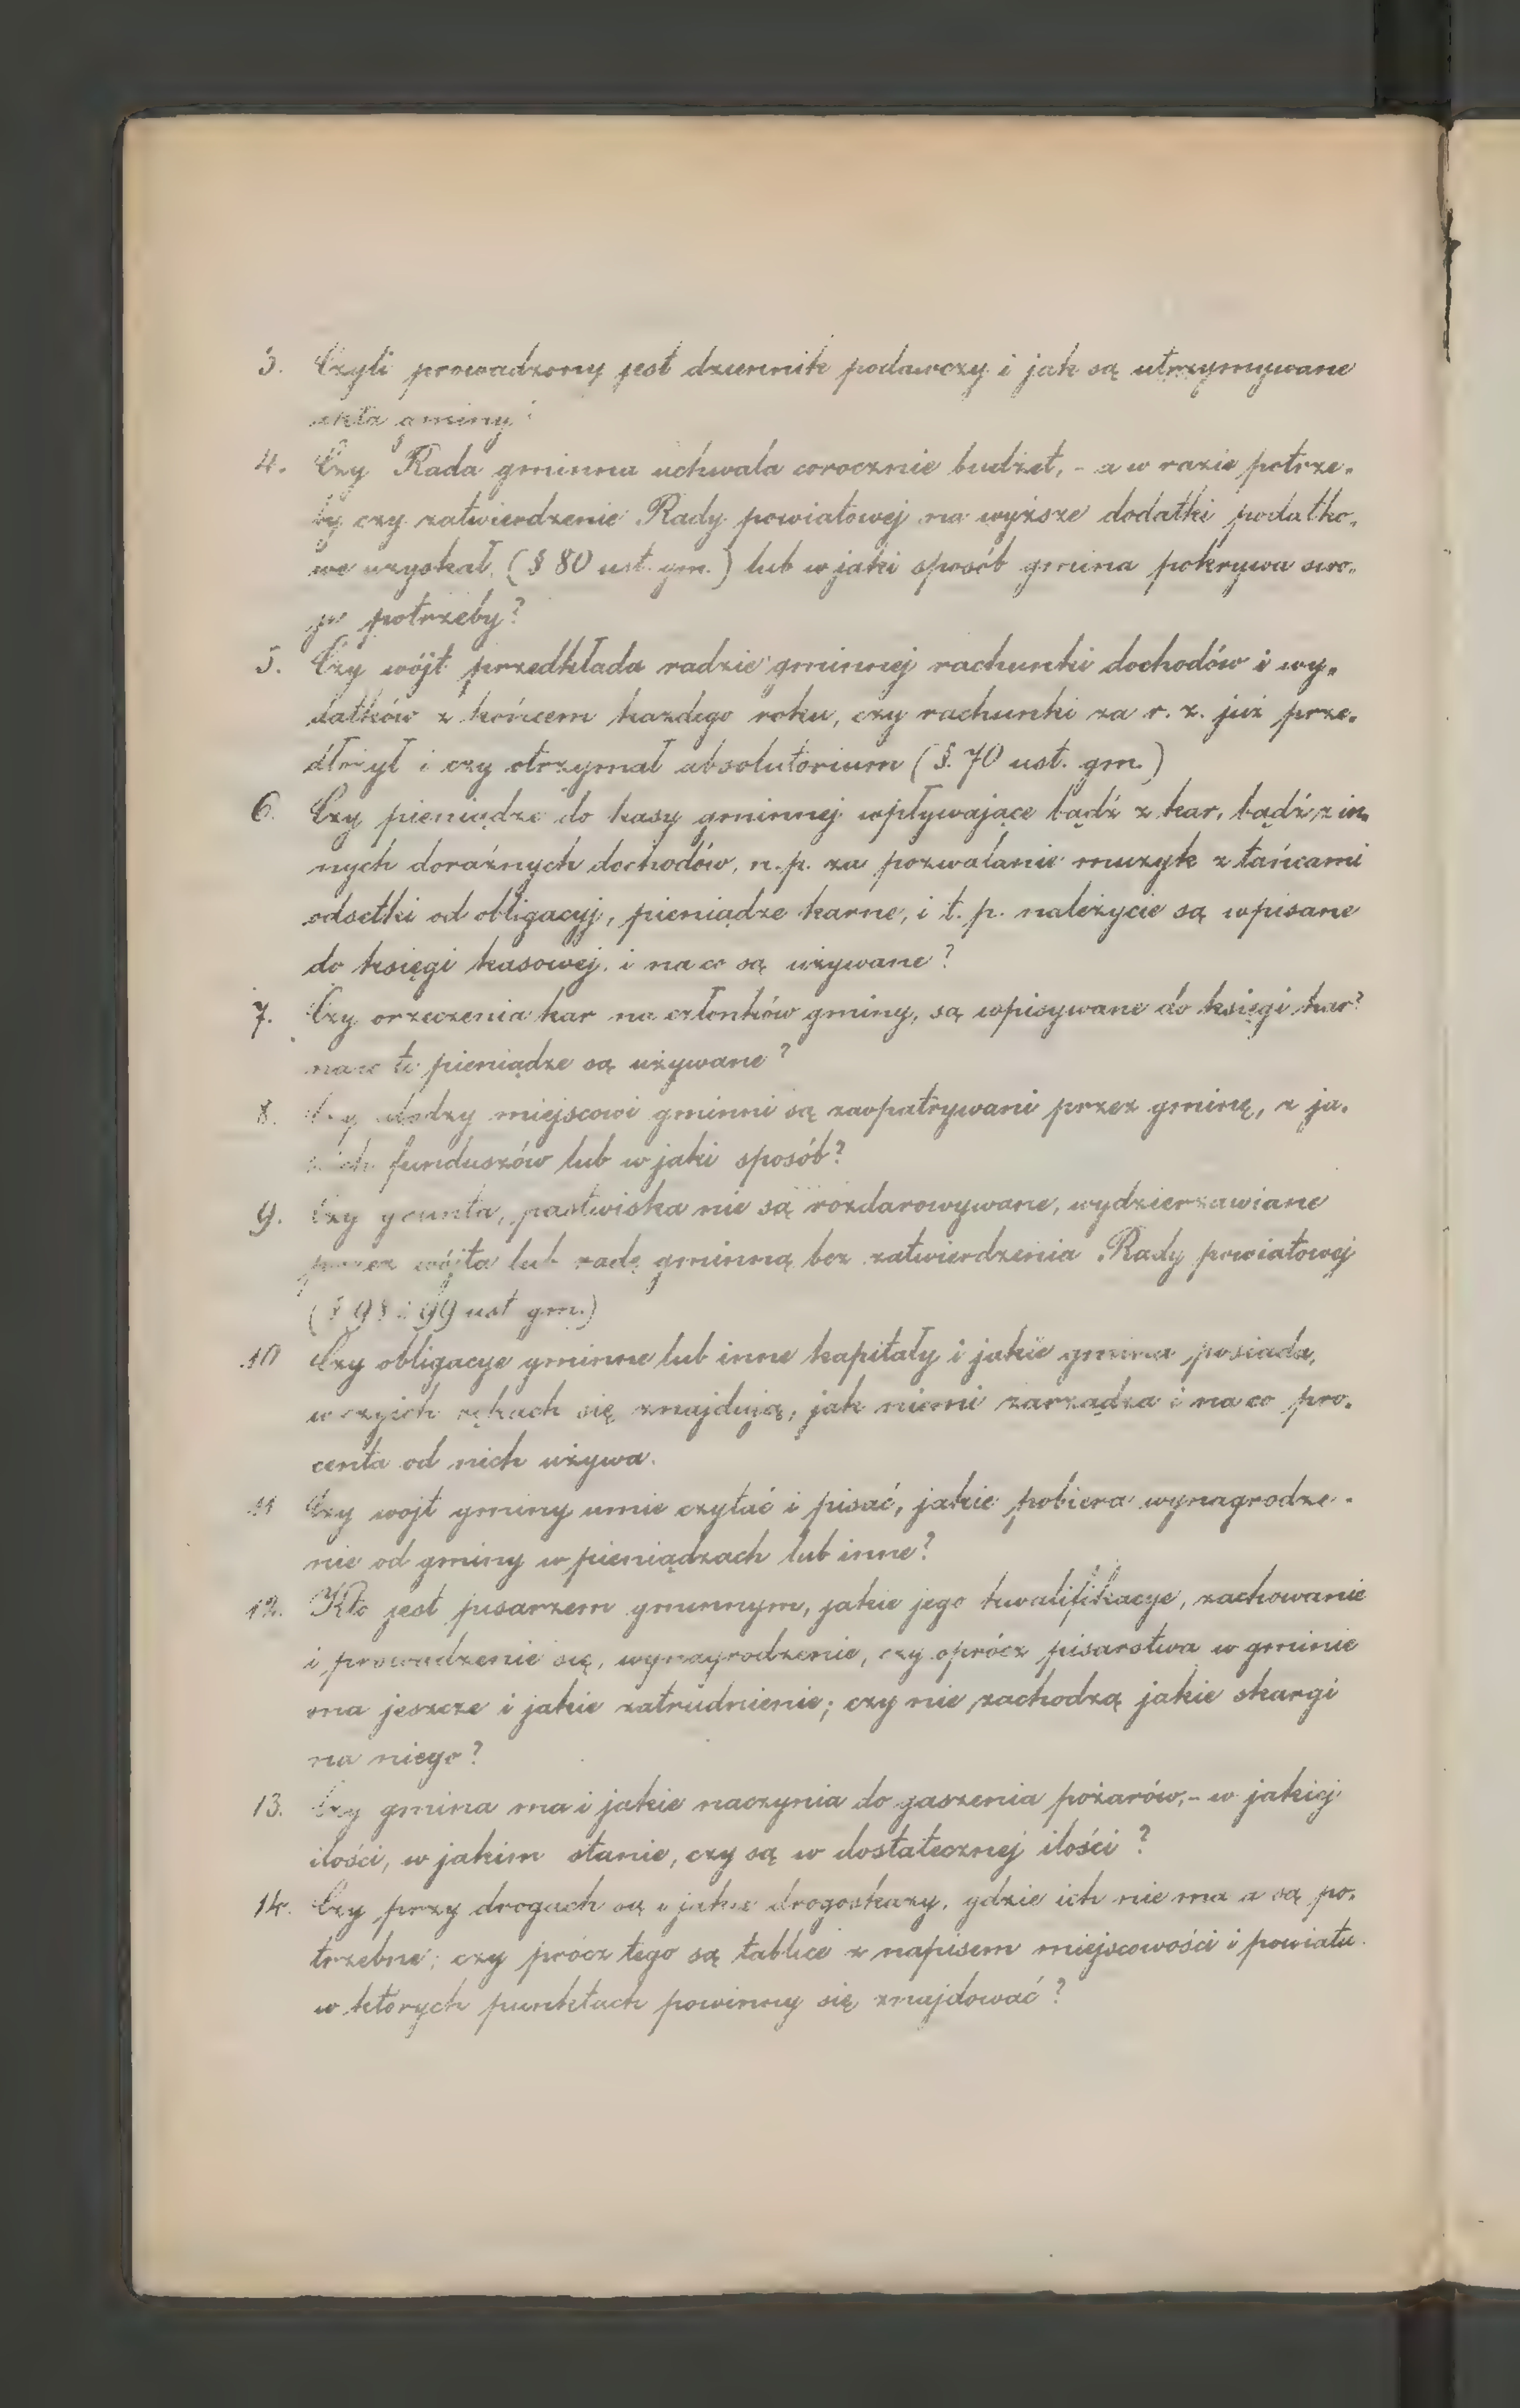 3. Czyli prowadzony jest dziennik podawczy i jak są utrzymywane
akta gminy?
4. Czy Rada gminna uchwala corocznie budżet, - a w razie potrze-
by czy zatwierdzenie Rady powiatowej na wyższe dodatki podatko-
we uzyskał. (§ 80 ust. gm.) lub w jaki sposób gmina pokrywa swo-
je potrzeby?
5. Czy wójt przedkłada radzie gminnej rachunki dochodów i wy-
datków z końcem każdego roku, czy rachunki za r. z. już prze-
dłożył i czy otrzymał absolutorium (§. 70 ust. gm.)
6. Czy pieniądze do kasy gminnej wpływające bądź z kar, bądź z in-
nych doraźnych dochodów, n. p. za pozwalanie muzyk z tańcami
odsetki od obligacyj, pieniądze karne, i t. p. należycie są wpisane
do księgi kasowej, i na co są używane?
7. Czy orzeczenia kar na członków gminy, są wpisywane do księgi kar?
na co te pieniądze są używane?
8. Czy ubodzy miejscowi gminni są zaopatrywani przez gminę, z ja-
kich funduszów lub w jaki sposób?
9. Czy grunta, pastwiska nie są rozdarowywane, wydzierzawiane
przez wójta lub radę gminną bez zatwierdzenia Rady powiatowej
(§ 98 i 99 ust gm.)
10 Czy obligacye gminne lub inne kapitały i jakie gmina posiada,
w czyich rękach się znajdują, jak niemi zarządza i na co pro-
centa od nich używa.
11 Czy wójt gminy umie czytać i pisać, jakie pobiera wynagrodze-
nie od gminy w pieniądzach lub inne?
12. Kto jest pisarzem gminnym, jakie jego kwalifikacye, zachowanie
i prowadzenie się, wynagrodzenie, czy oprócz pisarstwa w gminie
ma jeszcze i jakie zatrudnienie; czy nie zachodzą jakie skargi
na niego?
13. Czy gmina ma i jakie naczynia do gaszenia pożarów,- w jakiej
ilości, w jakim stanie, czy są w dostatecznej ilości?
14. Czy przy drogach są i jakie drogoskazy, gdzie ich nie ma a są po-
trzebne; czy prócz tego są tablice z napisem miejscowości i powiatu
w których punktach powinny się znajdować?